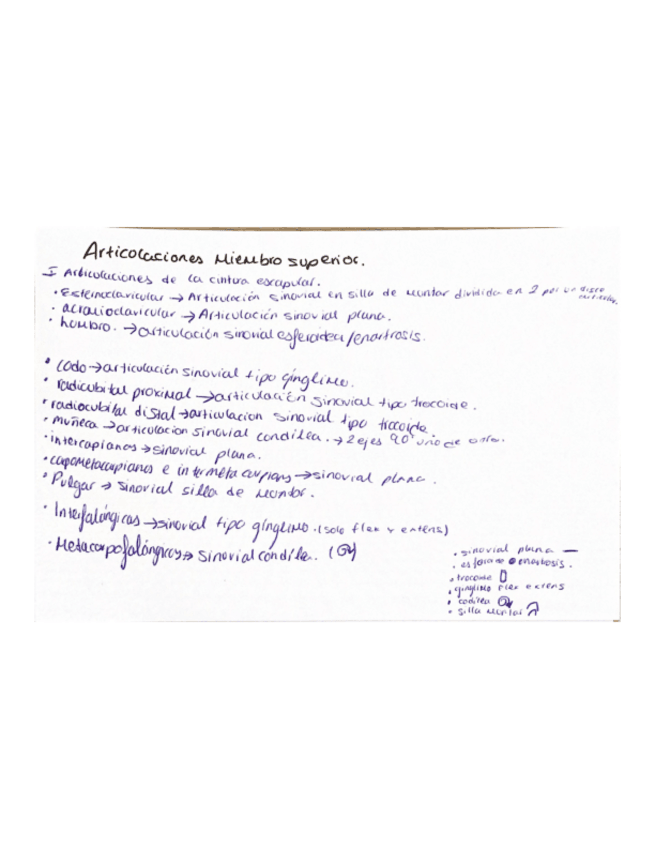 Articulaciones Miembro superior.
I Articulaciones de la cintura escapular.
· Esternoclavicular → Articulación sinovial en silla de montar dividida en 2 por un disco articular.
· acromioclavicular → Articulación sinovial plana.
· hombro. → articulación sinovial esferoidea/enartrosis.
· codo → articulación sinovial tipo gínglimo.
· radicubital proximal → articulación sinovial tipo trocoide.
· radiocubital distal → articulacion sinovial tipo trocoide.
· muñeca → articulación sinovial condílea. → 2 ejes 90º uno de otro.
· intercapianos → sinovial plana.
· carpometacarpianos e intermetacarpians → sinovial plana.
· Pulgar → sinovial silla de montar.
· Interfalángicas → sinovial tipo gínglimo. (solo flex y extens)
· Metacarpofalángicas → sinovial condílea.
· sinovial plana —
· enartosis.
· trocoide
· gínglimo flex extens
· codílea
· silla montar